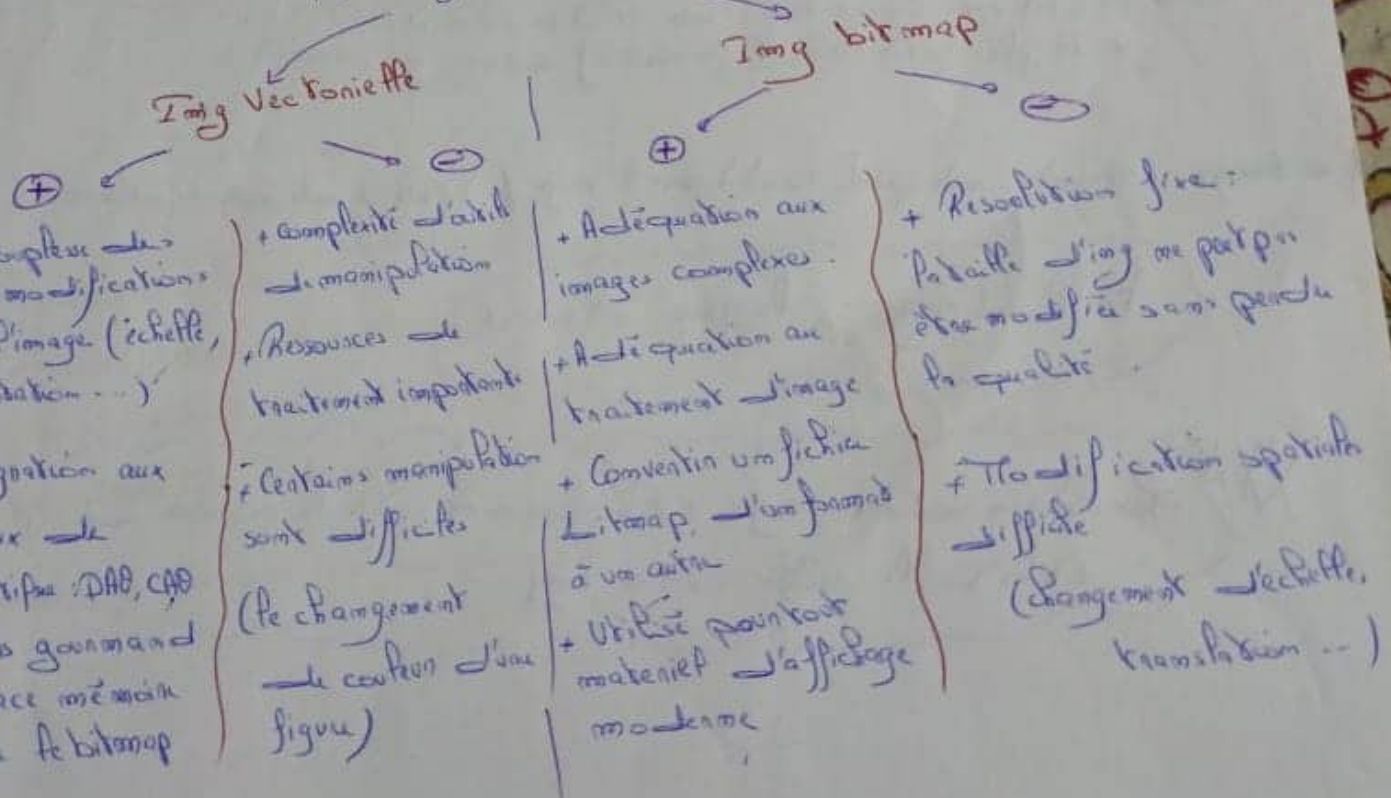 Img Vectorielle
Img bitmap
+
-
+
-
souplesse des
modifications
l'image (échelle,
tation...)
quation aux
x de
DAO, CAO
s gourmand
ace mémoire
le bitmap
+ complexité d'
de manipulation
+ Ressources de
traitement important
+ Certains manipulation
sont difficiles
(le changement
de couleur d'une
figure)
+ Adéquation aux
images complexes.
+ Adéquation au
traitement d'image
+ Convertir un fichier
bitmap, d'un format
à un autre
+ Utilisé pour tout
materiel d'affichage
moderne
+ Resolution fixe :
la taille d'img ne peut pas
être modifiée sans perdre
la qualité.
+ Modification spatiale
difficile
(changement d'echelle,
translation...)